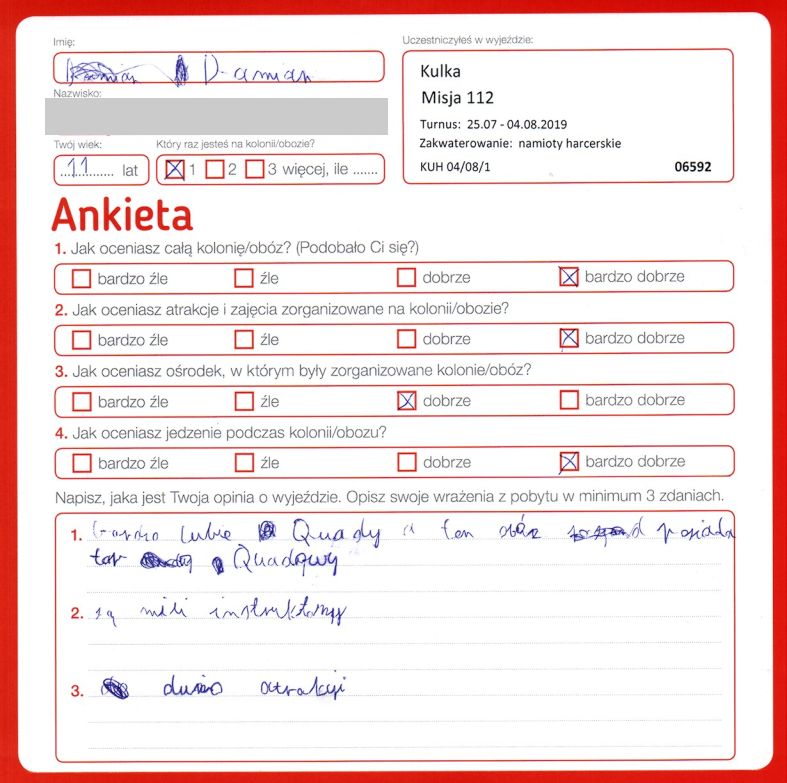 Imię:
Damian
Nazwisko:
Twój wiek:
11 lat
Który raz jesteś na kolonii/obozie?
1 2 3 więcej, ile .......
Uczestniczyłeś w wyjeździe:
Kulka
Misja 112
Turnus: 25.07 - 04.08.2019
Zakwaterowanie: namioty harcerskie
KUH 04/08/1 06592
Ankieta
1. Jak oceniasz całą kolonię/obóz? (Podobało Ci się?)
bardzo źle źle dobrze bardzo dobrze
2. Jak oceniasz atrakcje i zajęcia zorganizowane na kolonii/obozie?
bardzo źle źle dobrze bardzo dobrze
3. Jak oceniasz ośrodek, w którym były zorganizowane kolonie/obóz?
bardzo źle źle dobrze bardzo dobrze
4. Jak oceniasz jedzenie podczas kolonii/obozu?
bardzo źle źle dobrze bardzo dobrze
Napisz, jaka jest Twoja opinia o wyjeździe. Opisz swoje wrażenia z pobytu w minimum 3 zdaniach.
1. bardzo lubie Quady a ten obóz posiada
tor Quadowy
2. są mili instruktorzy
3. dużo atrakcji